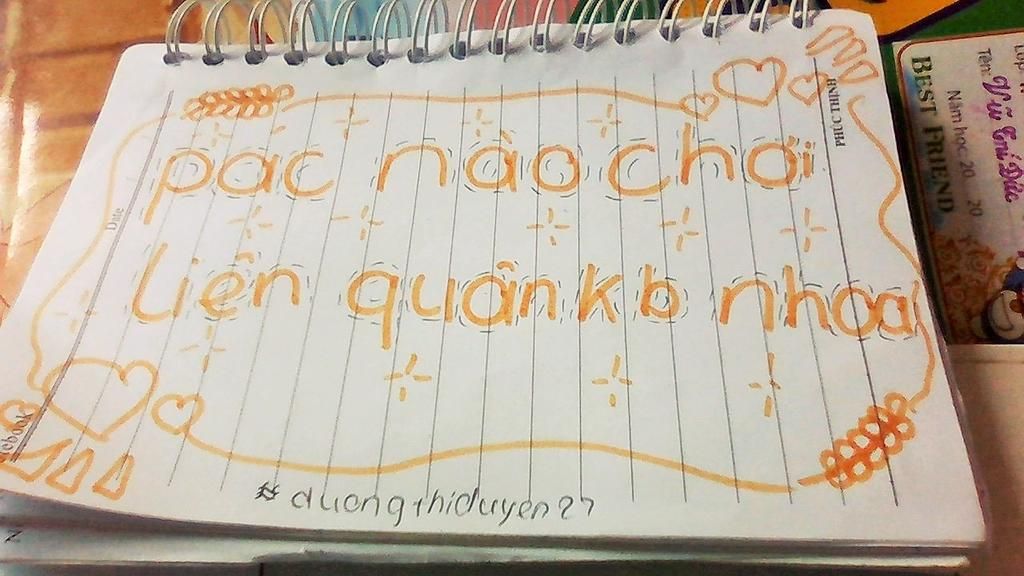 pac nào chơi
liên quân kb nhoa
# duongthiduyen27
Date
PHÚC THỊNH
ebook
BEST FRIEND
Năm học 20 20
Tên: Vũ Trí Đức
Lớp: